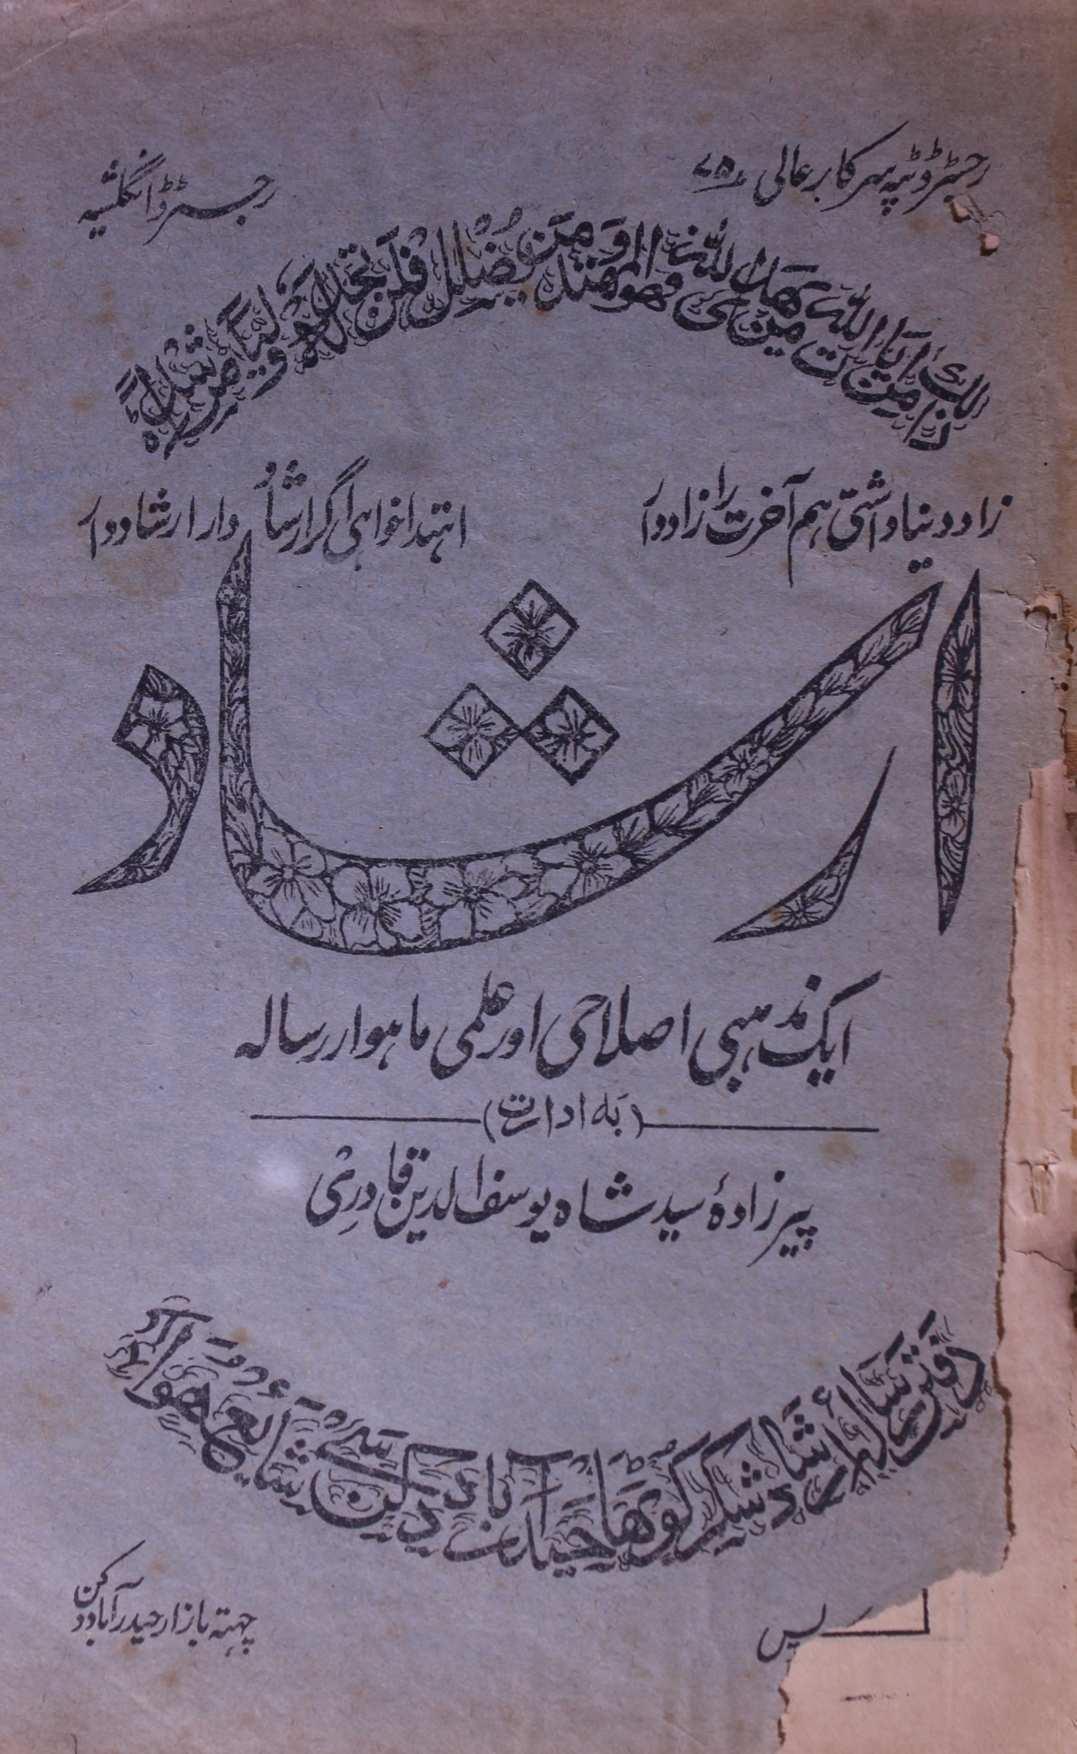 رجسٹرڈ ٹپہ سرکار عالی ۷۵
رجسٹرڈ انگلشیہ
ذلک من اٰیات اللہ من یھد اللہ فھو المھتد ومن یضلل فلن تجد لہ ولیا مرشدا
زاد دنیا داشتی ہم آخرت را زاد دار
اہتدا خواہی اگر ارشاد دار ارشاد دار
ارشاد
ایک مذہبی اصلاحی اور علمی ماہوار رسالہ
(بہ ادارت)
پیرزادۂ سید شاہ یوسف الدین قادری
دفتر رسالہ ارشاد شکر کوٹھا حیدرآباد دکن سے شایع ھوا
یس
چہتہ بازار حیدرآباد دکن